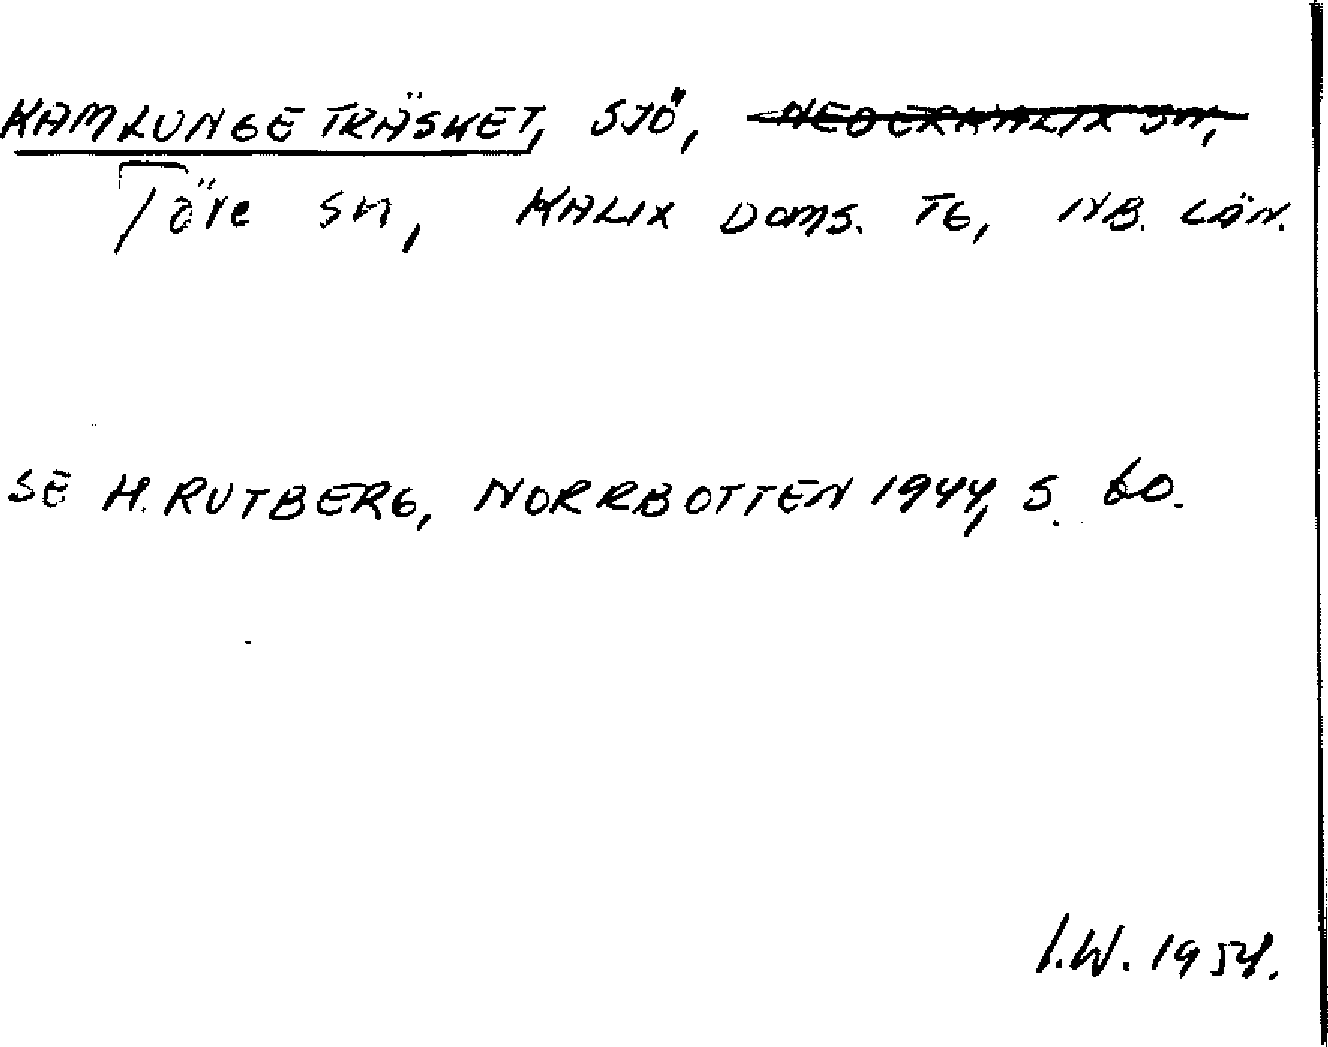 KAMLUNGETRÄSKET, SJÖ, NEDERKALIX SN,
Töre sn, KALIX DOMS. TG, NB. LÄN.
SE H. RUTBERG, NORRBOTTEN 1944, S. 60.
I.W. 1954.